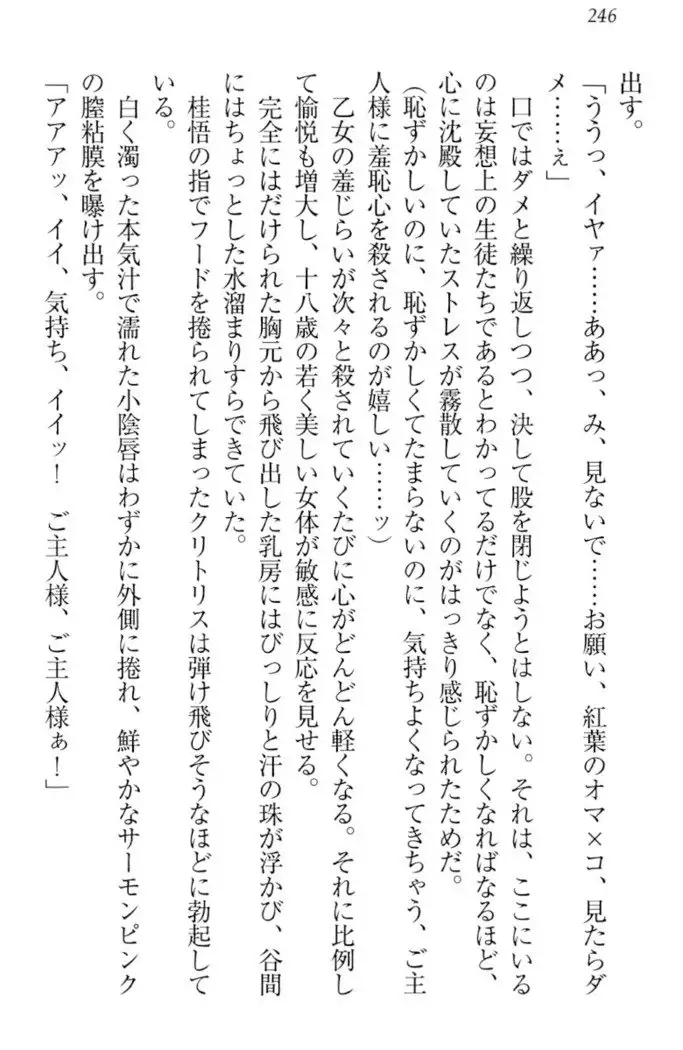 246
出す。
「ううっ、イヤァ……ああっ、み、見ないで……お願い、紅葉のオマ×コ、見たらダ
メ……ぇ」
口ではダメと繰り返しつつ、決して股を閉じようとはしない。それは、ここにいる
のは妄想上の生徒たちであるとわかってるだけでなく、恥ずかしくなればなるほど、
心に沈殿していたストレスが霧散していくのがはっきり感じられたためだ。
(恥ずかしいのに、恥ずかしくてたまらないのに、気持ちよくなってきちゃう、ご主
人様に羞恥心を殺されるのが嬉しい……ッ)
乙女の羞じらいが次々と殺されていくたびに心がどんどん軽くなる。それに比例し
て愉悦も増大し、十八歳の若く美しい女体が敏感に反応を見せる。
完全にはだけられた胸元から飛び出した乳房にはびっしりと汗の珠が浮かび、谷間
にはちょっとした水溜まりすらできていた。
桂悟の指でフードを捲られてしまったクリトリスは弾け飛びそうなほどに勃起して
いる。
白く濁った本気汁で濡れた小陰唇はわずかに外側に捲れ、鮮やかなサーモンピンク
の膣粘膜を曝け出す。
「アアアッ、イイ、気持ち、イイッ！　ご主人様、ご主人様ぁ！」